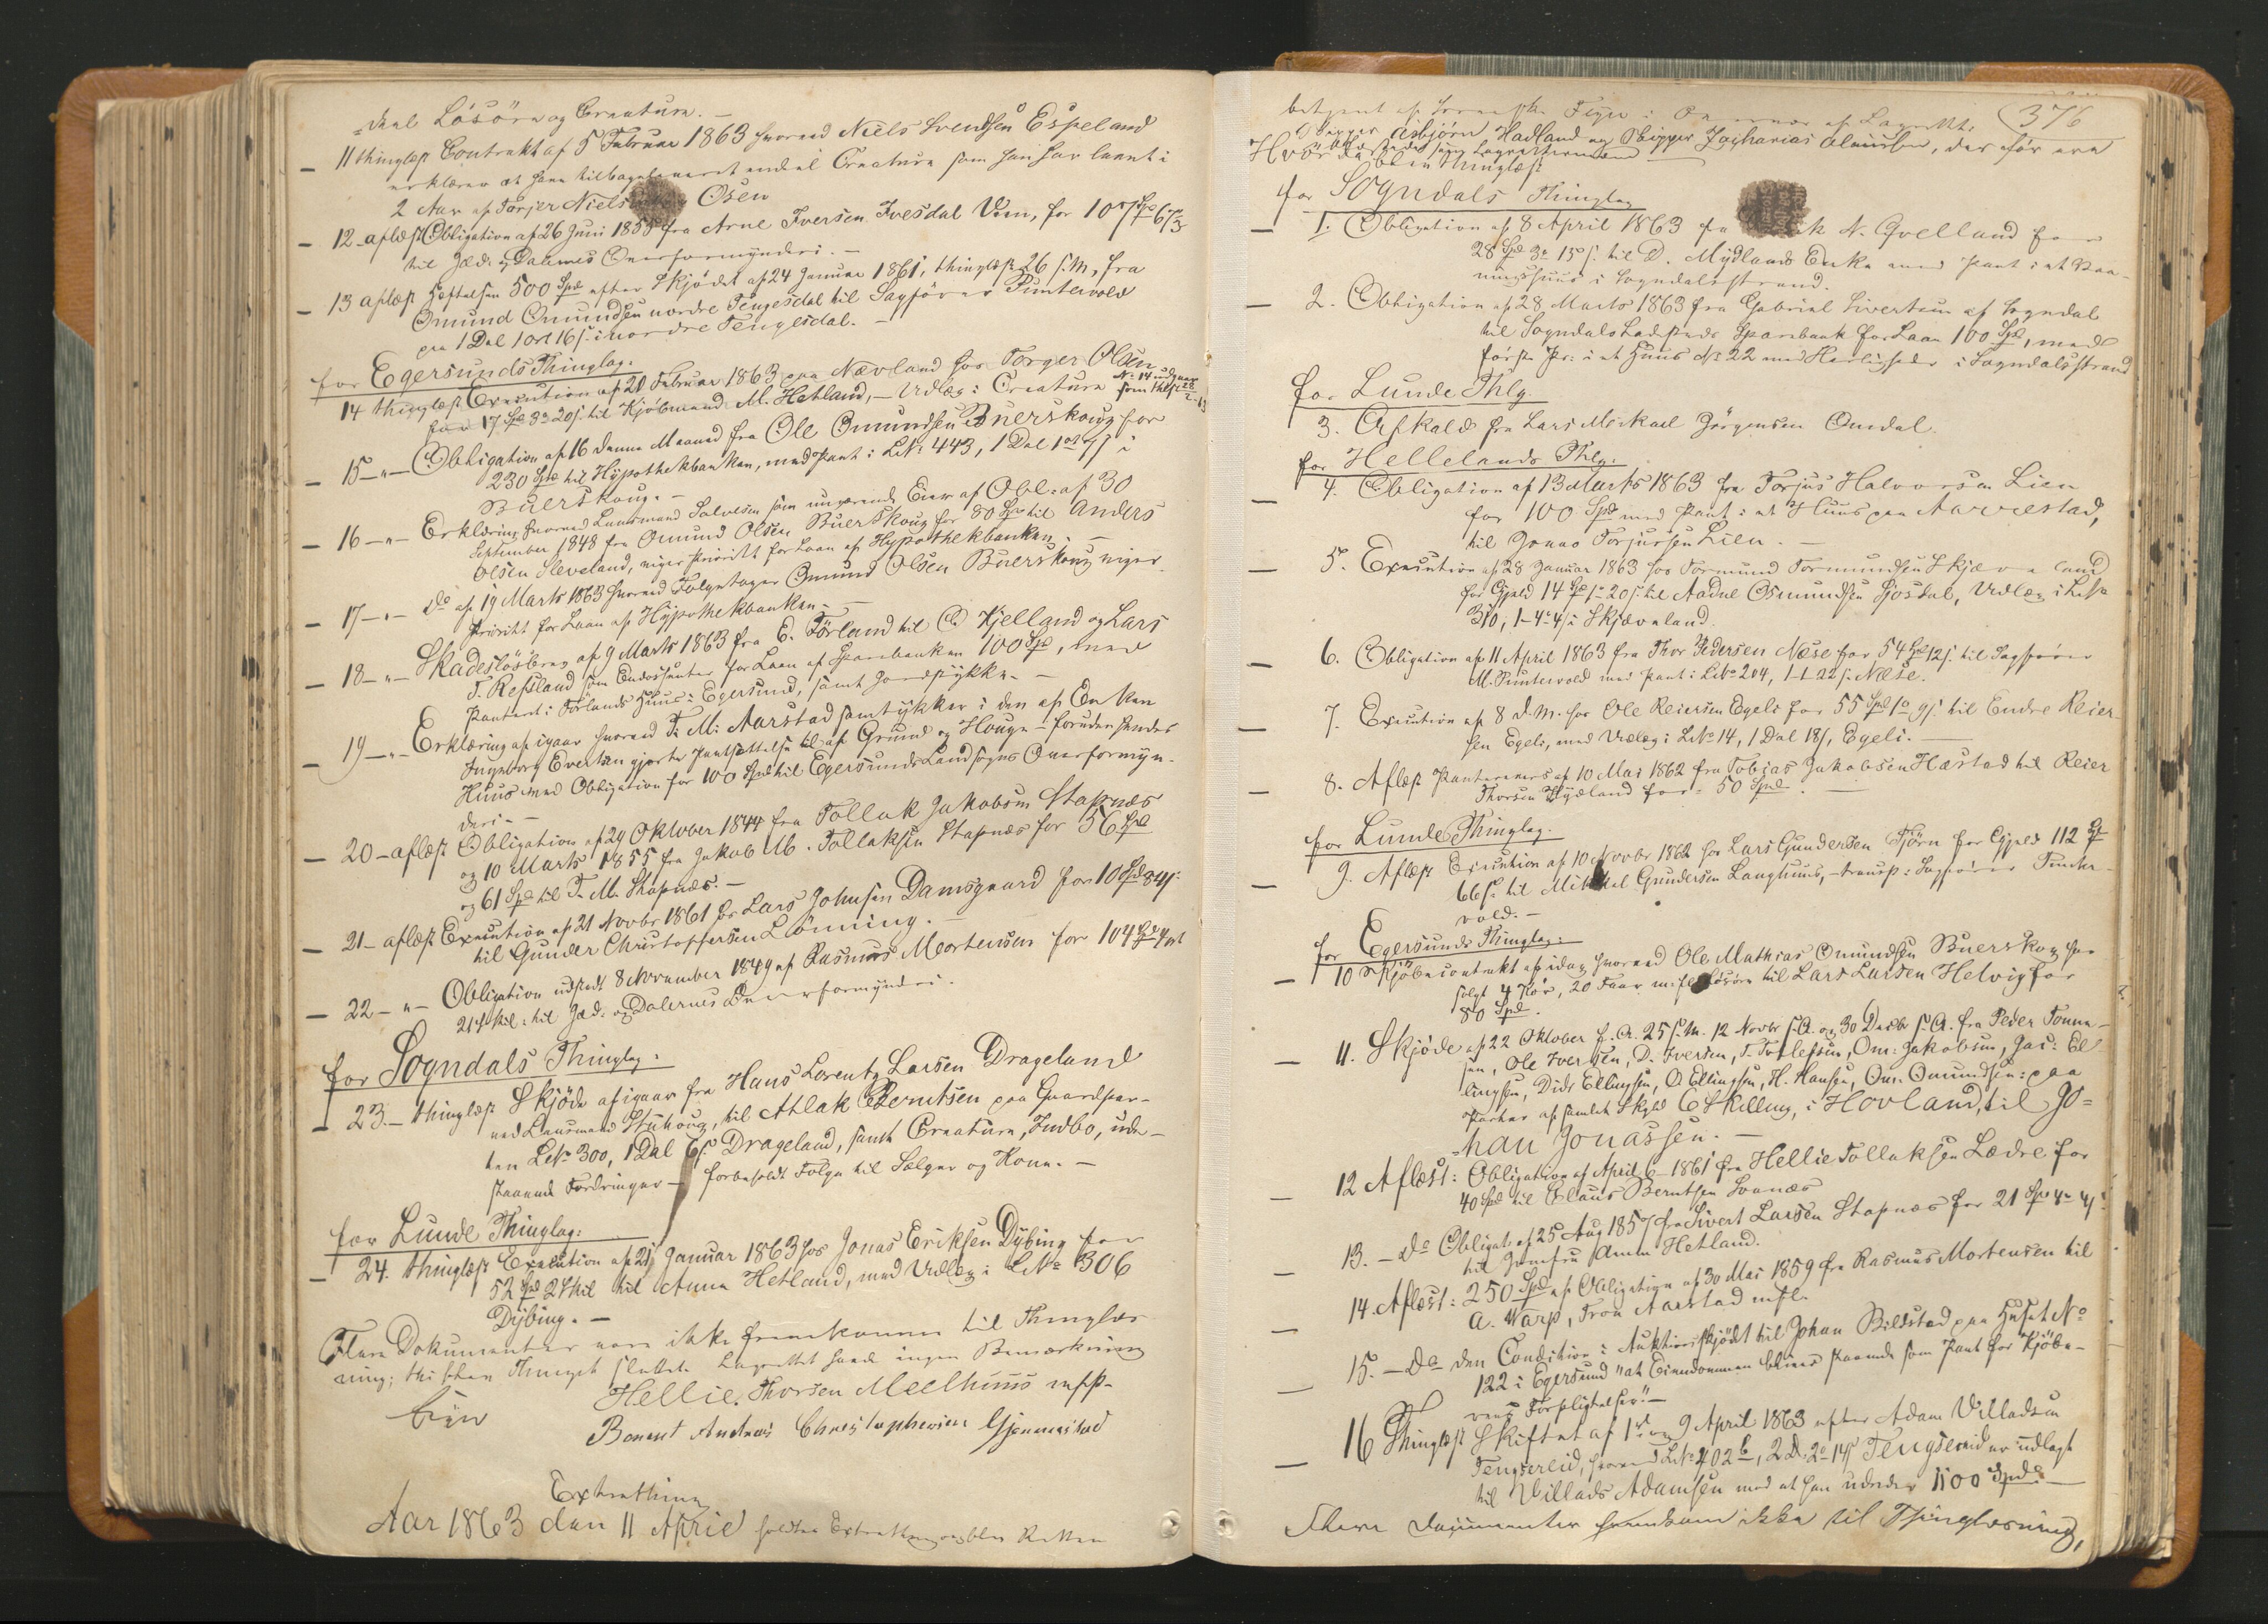 deel Lösöre og Creature. -
- 11 thinglæst Contrakt af 5 Februar 1863 hvorved Niels Svendsen Espeland
erklærer at have tilbageleveret endeel Creature som han har leiet i
2 Aar af Torjer Niels Osen
- 12 - aflæst Obligation af 26 Juni 1855 fra Arne Iversen Ivesdal Vem, for 107 Spd 67 s
til Jæd. og Dalernes Overformynderi. -
- 13 aflæst Heftelsen 500 Spd efter Skjödet af 24 Januar 1861, thinglæst 26 s. M., fra
Omund Omundsen nordre Tengesdal til Sagförer Puntervold
paa 1 Dal 1 ort 16 s. i nordre Tengesdal. -
for Egersunds Thinglag.
14 thinglæst Execution af 20 Februar 1863 paa Nævland hos Torger Olsen
for 17 Spd 3 o 20 s. til Kjöbmand M. Hetland, - Udlæg: Creature
No 14 udgaaer
som thlst 28/2 - 63
- 15 - " - Obligation af 16 denne Maaned fra Ole Omundsen Buerskoug for
230 Spd til Hypothekbanken, med Pant i LNo 443, 1 Dal 1 ort 7 s i
Buerskoug. -
- 16 - " - Erklæring hvorved Lensmand Salvesen som nuværende Eier af Obl. af 30
September 1848 fra Omund Olsen Buerskoug for 80 Spd til Anders
Olsen Sleveland, viger Prioritet for Laan af Hypothekbanken. -
- 17 - " - Do af 19 Marts 1863 hvorved Folgetager Omund Olsen Buerskoug viger
Prioritet for Laan af Hypothekbanken. -
- 18 - " - Skadeslösbrev af 9 Marts 1863 fra E. Förland til C Kjelland og Lars
T. Refsland som Endossenter for Laan af Sparebanken 100 Spd, med
Panteret i Förlands Huus i Egersund, samt Jordstykke. -
- 19 - " - Erklæring af igaar hvorved T. M. Aarstad samtykker i den af Enken
Ingeborg Evertsen gjorte Pantsættelse til af Grund og Houge - foruden hendes
Huus med Obligation for 100 Spd til Egersunds Landsogns Overformyn-
deri. -
- 20 - aflæst Obligation af 29 Oktober 1844 fra Tollak Jakobsen Stapnæs
og 10 Marts 1855 fra Jakob Ab. Tollaksen Stapnæs for 56 Spd
og 61 Spd til T. M. Stapnæs. -
- 21 - aflæst Execution af 21 Novbr 1861 hos Lars Johnsen Damsgaard for 10 Spd 84 s.
til Gunder Christoffersen Lönning. -
- 22 - " - Obligation udstedt 8 November 1849 af Rasmus Mortensen for 104 Spd 4 ort
21 1/2 Skil. til Jæd. og Dalernes Overformynderi.
for Sogndals Thinglag.
- 23. - thinglæst Skjöde af igaar fra Hans Lorentz Larsen Drageland
ved Lensmand Stuhoug, til Atlak Berntsen paa Gaardpar-
ten LNo 300, 1 Dal 6 s. Drageland, samt Creature, Indbo, ude-
staaende Fordringer - forbeholdt Folge til Sælger og Kone. -
for Lunde Thinglag:
- 24. thinglæst Execution af 21 Januar 1863 hos Jonas Eriksen Dybing for
52 Spd 2 Skil til Anna Hetland, med Udlæg i LNo 306
Dybing. -
Flere Dokumenter vare ikke fremkomne til Thinglæs-
ning; thi blev Thinget sluttet. Lagrettet havde ingen Bemærkning
Hellie Thorsen Meelhuus mfP.
Berent Andreas Christophersen Gjermestad
Extrathing
Aar 1863 den 11 April holdtes Extrathing og blev Retten
376
betjent af Sorenskr. Feyer i Overvær af Lagrettet:
Skipper Asbjörn Hadland og Skipper Zacharias Claussen, der før ere
Hvorda blev thinglæst
for Sogndals Thinglag
- 1. Obligation af 8 April 1863 fra k N. Qvelland for
28 Spd 3 o 15 s. til D. Mydlands Enke med Pant i et Vaa-
ningshuus i Sogndalsstrand.
- 2. Obligation af 28 Marts 1863 fra Gabriel Sivertsen af Sogndal
til Sogndals Ladesteds Sparebank for Laan 100 Spd, med
første Pr. i et Huus No 22 med Herligheder i Sogndalsstrand
for Lunde Thlg.
3. Afkald fra Lars Mikael Jörgensen Omdal.
for Hellelands Thlg.
- 4. Obligation af 13 Marts 1863 fra Torjus Halvorsen Lien
for 100 Spd med Pant i et Huus paa Aarrestad,
til Jonas Torjussen Lien. -
- 5. Execution af 28 Januar 1863 hos Tormund Tormundsen Skjæveland
for Gjæld 14 Spd 1 o 20 s. til Aadne Osmundsen Gjosdal, Udlæg i LNo
310, 1-4-4 s. i Skjæveland.
- 6. Obligation af 11 April 1863 fra Thor Pedersen Næse for 54 Spd 12 s. til Sagförer
M. Puntervold med Pant i LNo 204, 1-1-22 s. Næse.
- 7. Execution af 8 d. M. hos Ole Reiersen Egeli for 55 Spd 1 o 9 s. til Endre Reier-
sen Egeli, med Udlæg i LNo 14, 1 Dal 18 s, Egeli. -
- 8. Aflæst Panterevers af 10 Mai 1862 fra Tobias Jakobsen Hæstad til Reier
Thorsen Hyeland for = 50 Spd. -
for Lunde Thinglag.
- 9. Aflæst Execution af 10 Novbr 1862 hos Lars Gundersen Tjörn for Gjæld 112 Sp
66 s. til Mikkel Gundersen Laughuus, - transp. Sagförer Punter-
vold. -
for Egersunds Thinglag:
- 10 Kjöbecontrakt af idag hvorved Ole Mathias Omundsen Buerskog har
solgt 4 Kör, 20 Faar m. fl. Lösöre til Lars Larsen Helvig for
80 Spd.
- 11. Skjöde af 22 Oktober f. A. 25 s. M. 12 Novbr s. A. og 30 Decbr s. A. fra Peder Tonne-
sen, Ole Iversen, D. Iversen, T. Tollefsen, Om. Jakobsen, Jac: El-
lingsen, Didr Ellingsen, O Ellingsen, H. Hansen, Om. Omundsen: paa
Parter af samlet Skyld 6 Skilling, i Hovland, til Jo=
han Jonassen. -
- 12 Aflæst: Obligation af April 6 - 1861 fra Hellie Tollaksen Lædre for
40 Spd til Claus Berntsen Svanæs
- 13. - do Obligat. af 25 Aug 1857 fra Sivert Larsen Stapnæs for 21 Spd 4 o 4 s.
til Jomfru Anna Hetland.
- 14. Aflæst: 250 Spd af Obligation af 30 Mai 1859 fra Rasmus Mortensen til
A. Warp, Tron Aarstad mfl.
- 15. - Do den Condition i Auktionsskjödet til Johan Bilstad paa Huset No
122 i Egersund "at Eiendommen bliver staaende som Pant for Kjöbe-
rens Forpligtelser". -
- 16 Thinglæst Skiftet af 1ste og 9 April 1863 efter Adam Villadsen
Tengsereid, hvorved LNo 402 b, 2 D. 2 o 14 s Tengsereid er udlagt
til Villads Adamsen mod at han udreder 1100 Spd. -
Flere Documenter fremkom ikke til Thinglæsning,